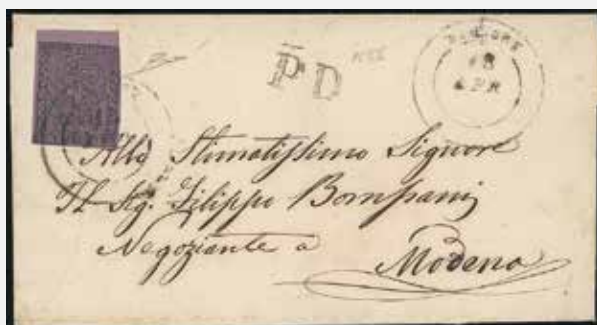 PD
APR
Allo Stimatissimo Signore
Il Sig. Filippo Bompani
Negoziante a
Modena